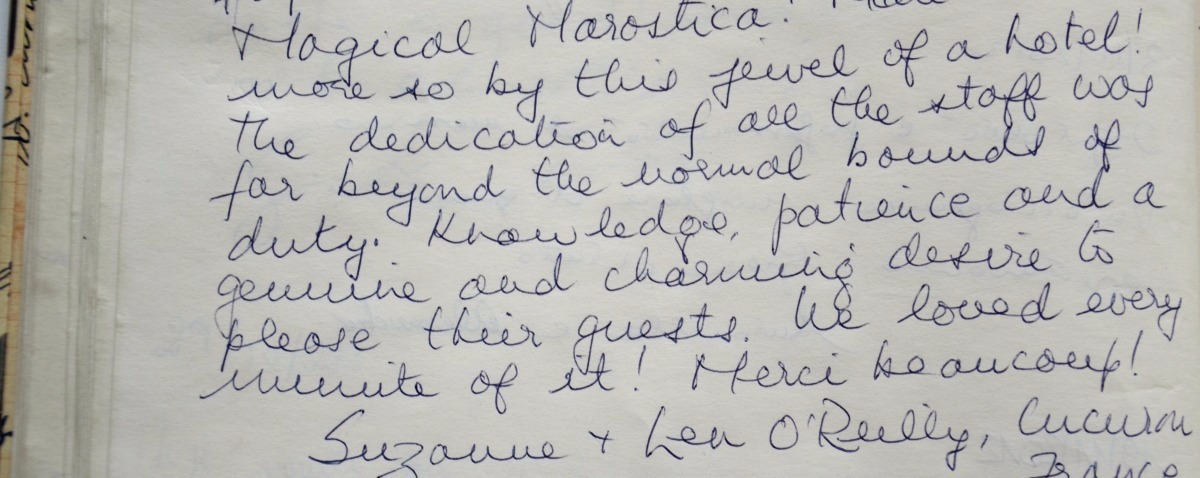 Magical Marostica! Made
more so by this jewel of a hotel!
The dedication of all the staff was
far beyond the normal bounds of
duty. Knowledge, patience and a
genuine and charming desire to
please their guests. We loved every
minute of it! Merci beaucoup!
Suzanne + Len O'Reilly, Cucuron
France